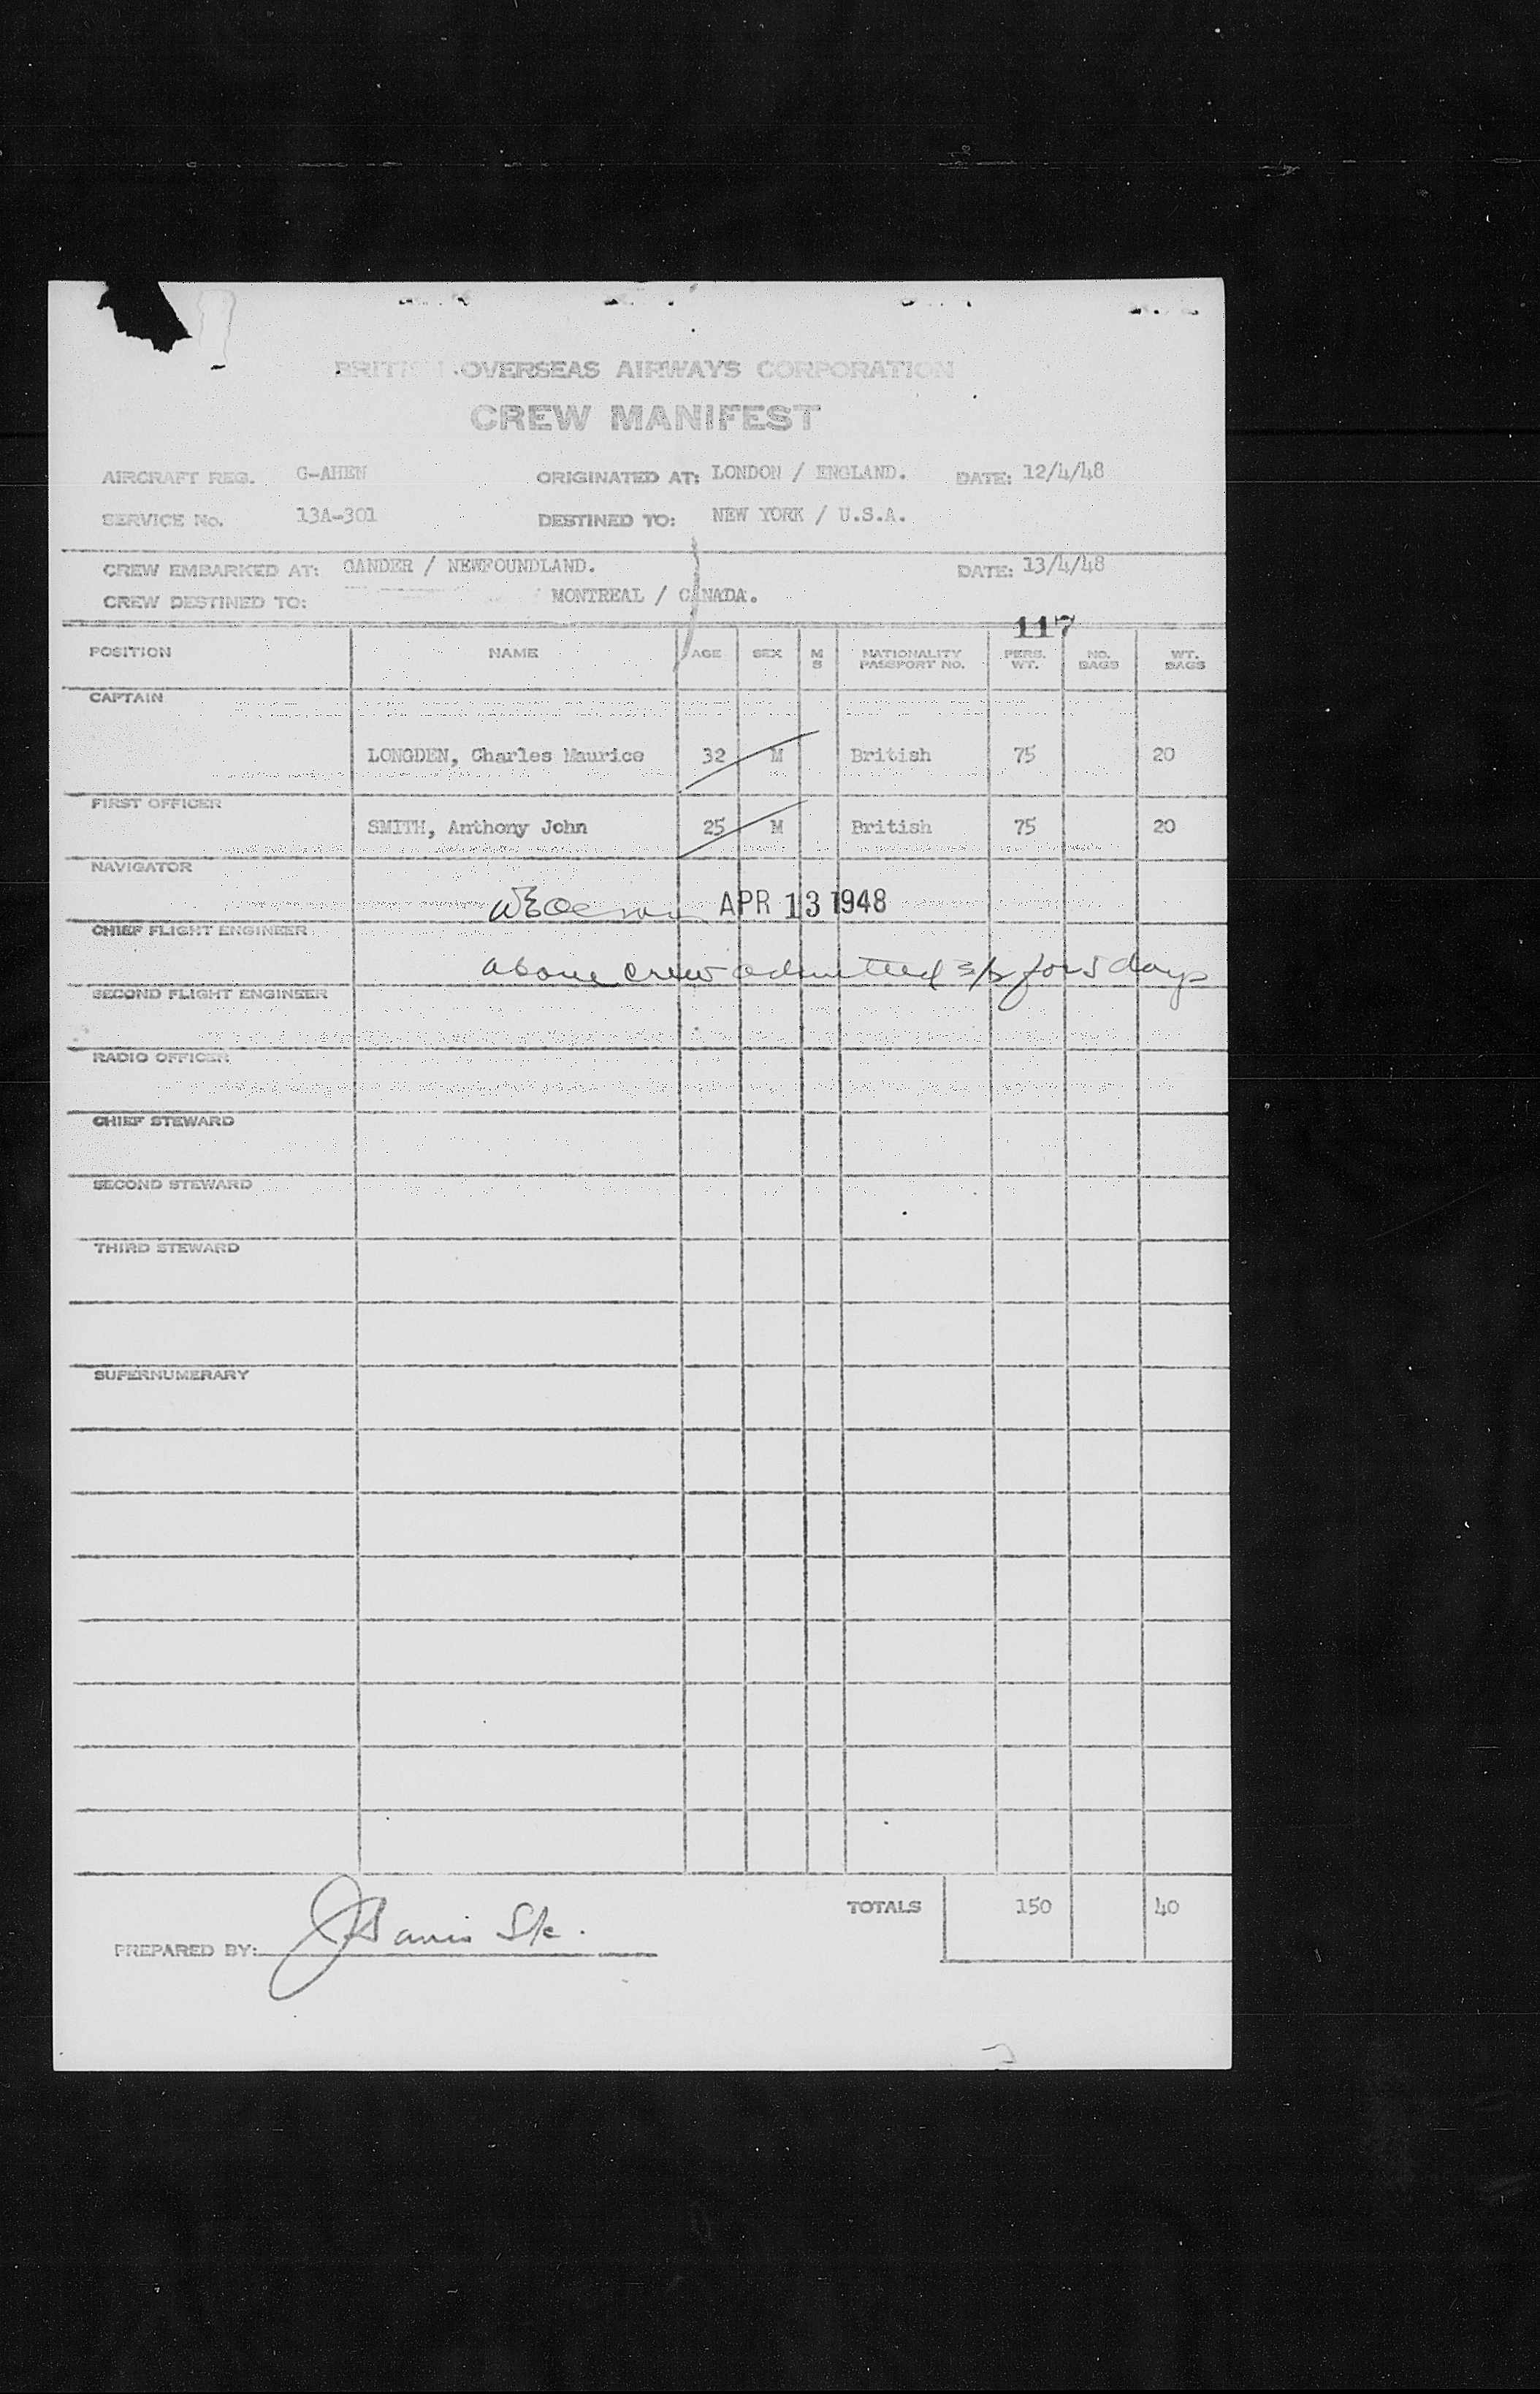 BRITISH OVERSEAS AIRWAYS CORPORATION
CREW MANIFEST
AIRCRAFT REG. G-AHEN ORIGINATED AT: LONDON / ENGLAND. DATE: 12/4/48
SERVICE No. 13A-301 DESTINED TO: NEW YORK / U.S.A.
CREW EMBARKED AT: GANDER / NEWFOUNDLAND. DATE: 13/4/48
CREW DESTINED TO: MONTREAL / CANADA.
117
POSITION NAME AGE SEX M S NATIONALITY PASSPORT NO. PERS. WT. NO. BAGS WT. BAGS
CAPTAIN
LONGDEN, Charles Maurice 32 M British 75 20
FIRST OFFICER
SMITH, Anthony John 25 M British 75 20
NAVIGATOR
APR 13 1948
CHIEF FLIGHT ENGINEER
above crew admitted for 5 days
SECOND FLIGHT ENGINEER
RADIO OFFICER
CHIEF STEWARD
SECOND STEWARD
THIRD STEWARD
SUPERNUMERARY
TOTALS 150 40
PREPARED BY: